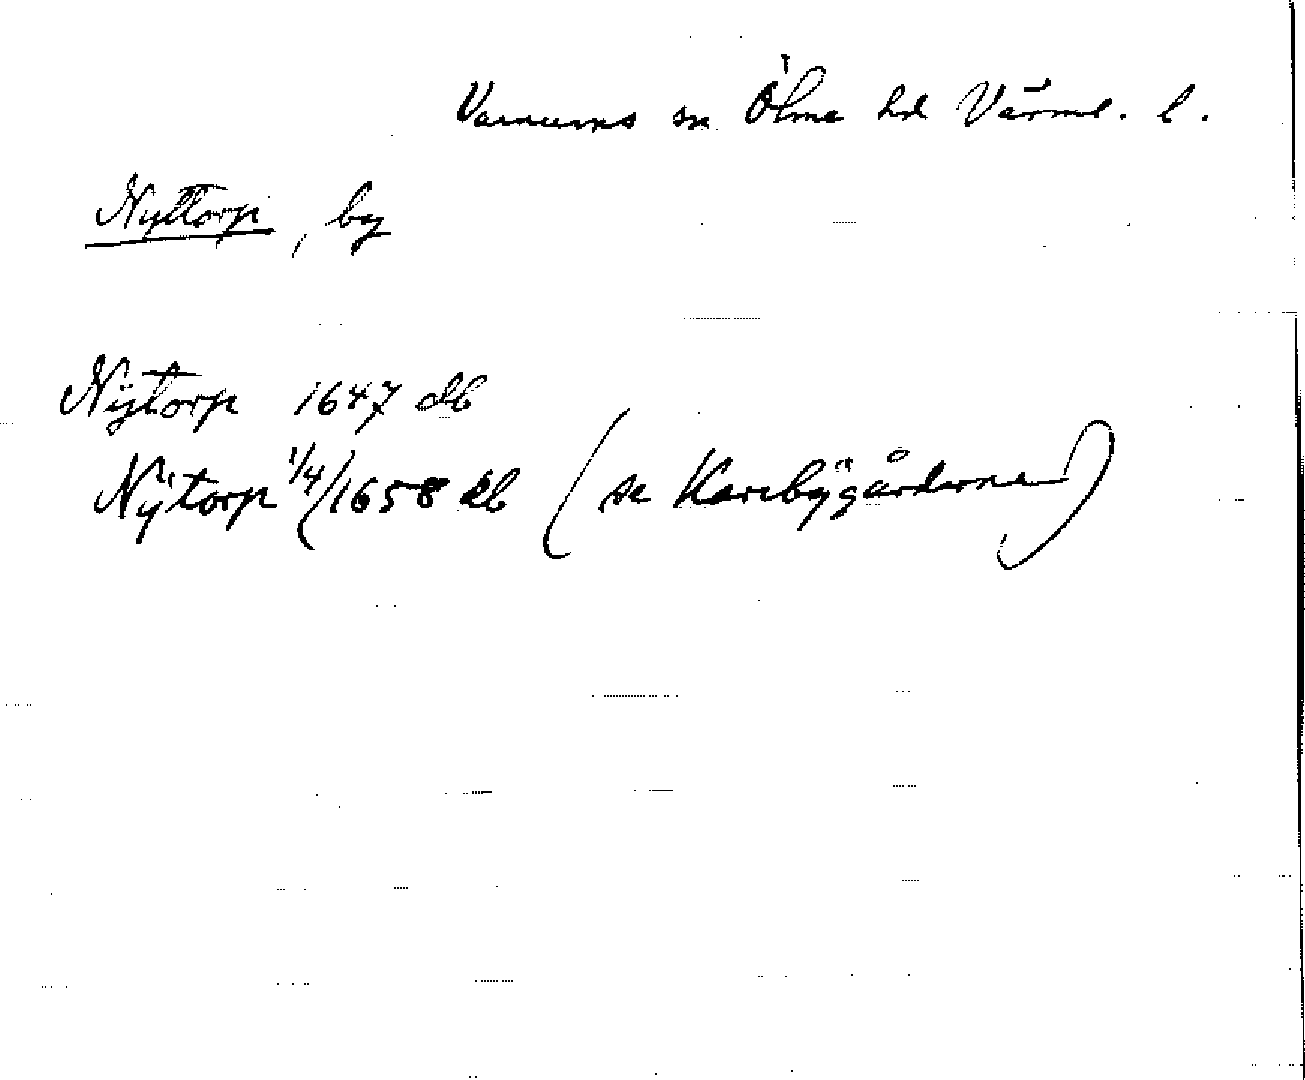 Varnums sn Ölme hd Värml. l.
Nytorp, by
Nÿtorp 1647 db
Nÿtorp 1/4/1658 db (se Karebÿgårderne)